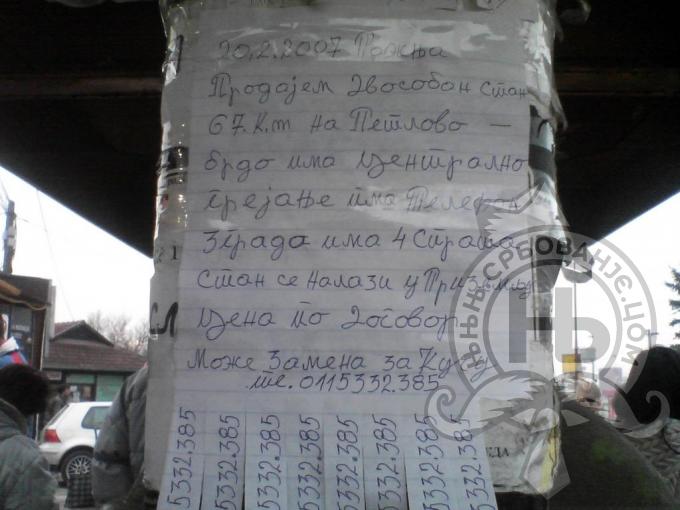 20,2.2007 Ражња
Продајем двособан стан
67.К.т на Петлово —
брдо има централно
грејање има Телефон
Зграда има 4 Страта
Стан се налази у Приземљу
Цена По Договор
Може Замена за Кућу
те. 0115332.385
5332.385
5332.385
5332.385
5332.385
5332.385
5332.385
5332.385
5332.385
ЊЊЊ.СРБОВАЊЕ.ЦОМ
Њ